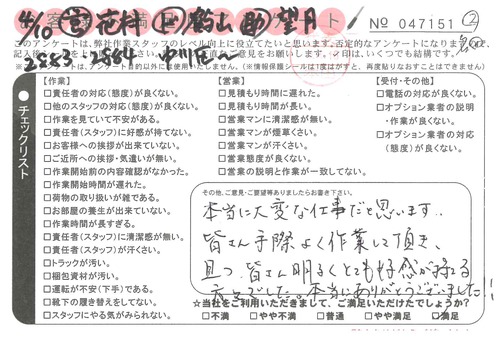 4/10 営 花井 正 鶴山 助 望月 ト
№ 047151 ②
このアンケートは、弊社作業スタッフのレベル向上に役立てたいと思います。否定的なアンケートになりま
2553 2884
【作業】
□責任者の対応(態度)が良くない。
□他のスタッフの対応(態度)が良くない。
□作業を見ていて不安がある。
□責任者(スタッフ)に好感が持てない。
□お客様への挨拶が出来ていない。
□ご近所への挨拶・気遣いが無い。
□作業開始前の内容確認がなかった。
□作業開始時間が遅れた。
□荷物の取り扱いが雑である。
□お部屋の養生が出来ていない。
□作業時間が長すぎる。
□責任者(スタッフ)に清潔感が無い。
□責任者(スタッフ)が汗くさい。
□トラックが汚い。
□梱包資材が汚い。
□運転が不安(下手)である。
□靴下の履き替えをしてない。
□スタッフにやる気がみられない。
【営業】
□見積もり時間に遅れた。
□見積もり時間が長い。
□営業マンに清潔感が無い。
□営業マンが煙草くさい。
□営業マンが汗くさい。
□営業態度が良くない。
□営業の説明と作業が一致してない。
【受付・その他】
□電話の対応が良くない。
□オプション業者の説明
・作業が良くない。
□オプション業者の対応
(態度)が良くない。
チェックリスト
その他、ご意見・ご要望等ありましたらお書き下さい。
本当に大変な仕事だと思います。
皆さん手際よく作業して頂き、
且つ皆さん明るくとても好感が持てる
方々でした。本当にありがとうございました!!
☆当社をご利用いただきまして、ご満足いただけたでしょうか?
□不満 □やや不満 □普通 □やや満足 □満足